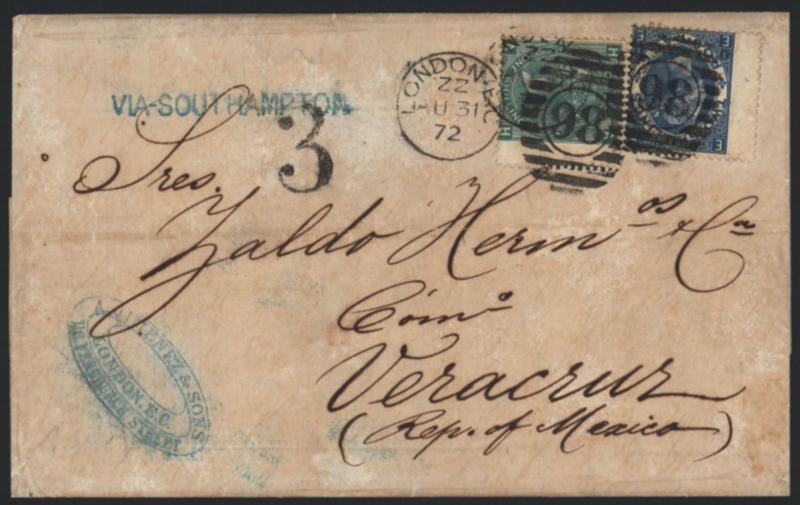 VIA-SOUTHAMPTON
3
LONDON-E.C
ZZ
AU 31
72
98
98
H
H
E
E
Sres.
Zaldo Herm.os & Ca
Cómo
Veracruz
(Rep. of Mexico)
& SONS
LONDON. E.C.